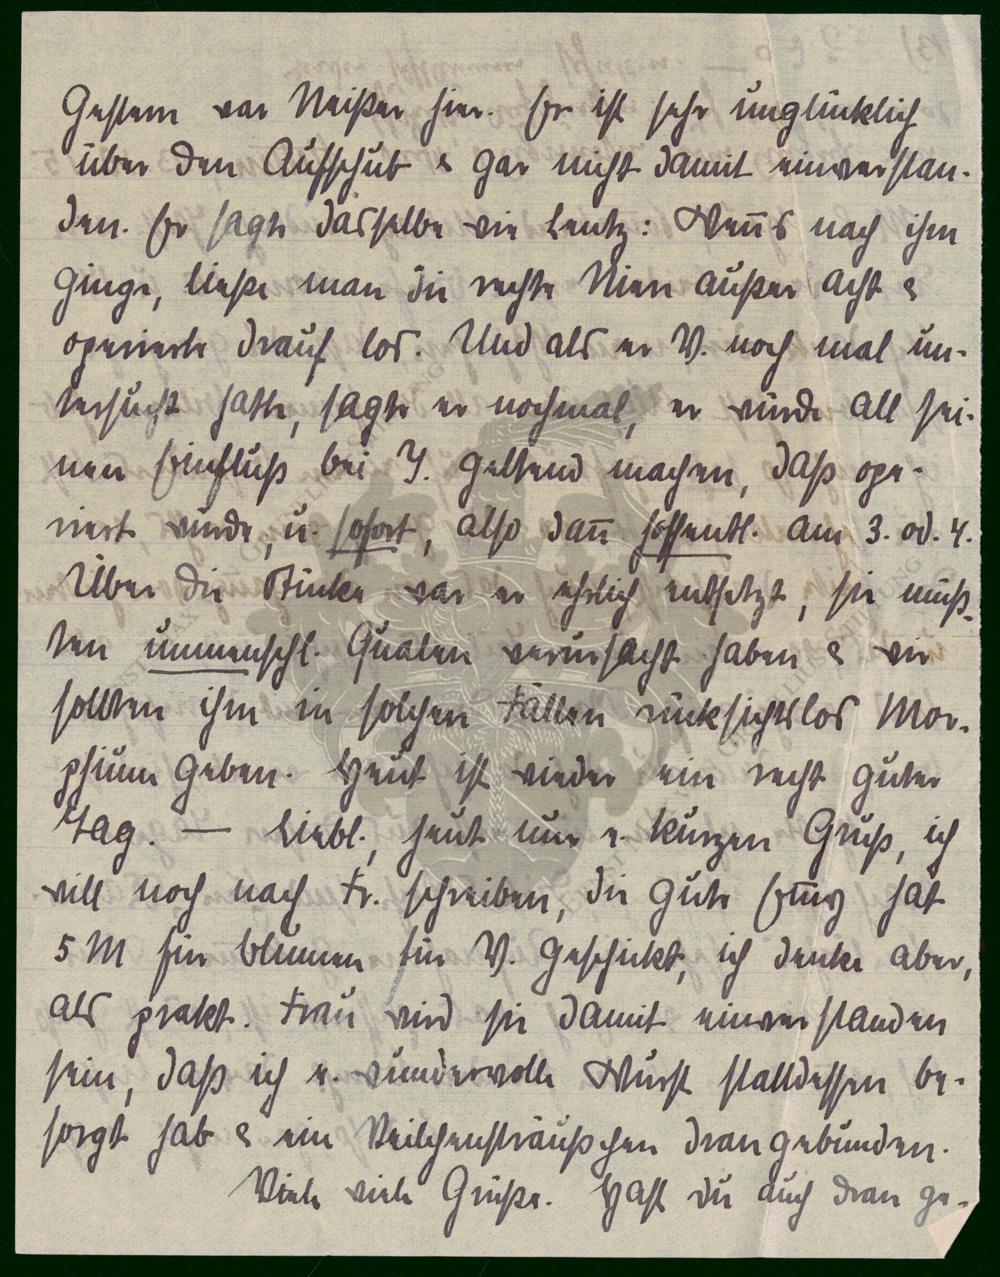 Gestern war Meißer hier. Er ist sehr unglücklich
über den Aufschub & gar nicht damit einverstan-
den. Er sagte dasselbe wie Lentz: Wenn̄s nach ihm
ginge, ließe man die rechte Niere außer acht &
operierte drauf los. Und als er V. noch mal un-
tersucht hatte, sagte er nochmal, er würde all sei-
nen Einfluß bei Y. geltend machen, daß ope-
riert würde, u. sofort, also dan̄ hoffentl. am 3. od. 4.
Über die Stücke war er ehrlich entsetzt, sie müß-
ten unmenschl. Qualen verursacht haben & wir
sollten ihm in solchen Fällen rücksichtslos Mor-
phium geben. Heut ist wieder ein recht guter
Tag. — Liebl., heut nur e. kurzen Gruß, ich
will noch nach Fr. schreiben, die gute Em̄y hat
5 M für Blumen für V. geschickt, ich denke aber,
als prakt. Frau wird sie damit einverstanden
sein, daß ich e. wundervolle Wurst stattdessen be-
sorgt hab & ein Veilchensträußchen dran gebunden.
Viele viele Grüße. Hast du auch dran ge-